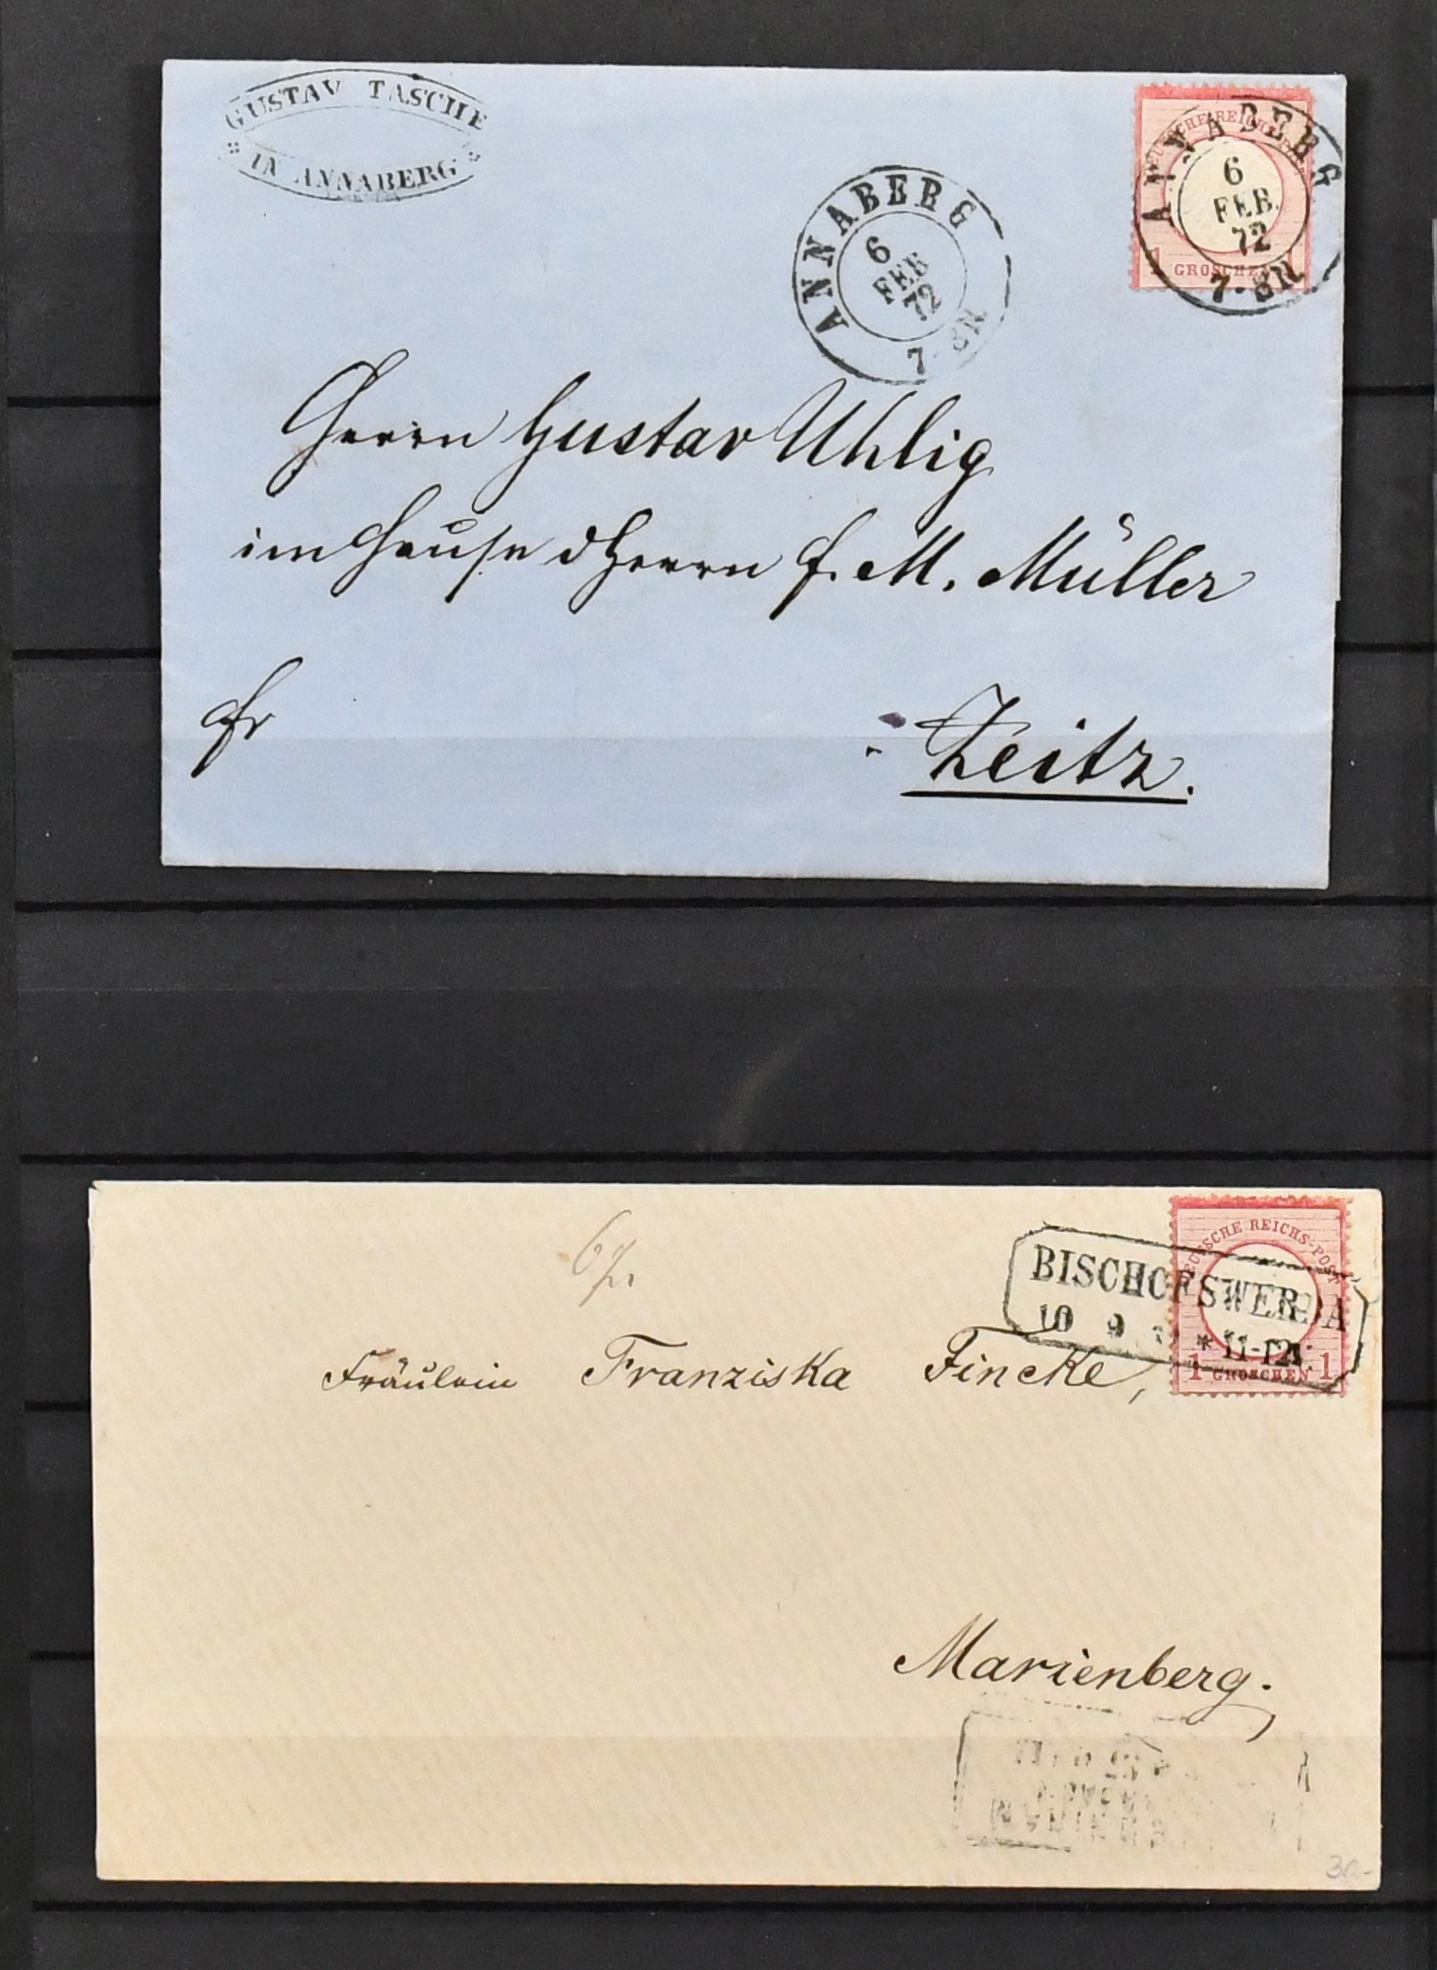 GUSTAV TASCHE
IN ANNABERG
ANNABERG
6
FEB
72
7-8N
DEUTSCHE REICHS-POST
1 GROSCHEN 1
ANNABERG
6
FEB.
72
7-8N
Herrn Gustav Uhlig
im Hause d Herrn F. M. Müller
fr
Zeitz.
DEUTSCHE REICHS-POST
1 GROSCHEN 1
BISCHOFSWERDA
10 9 * 11-12V.
Fräulein Franziska Fincke,
Marienberg.
30.-